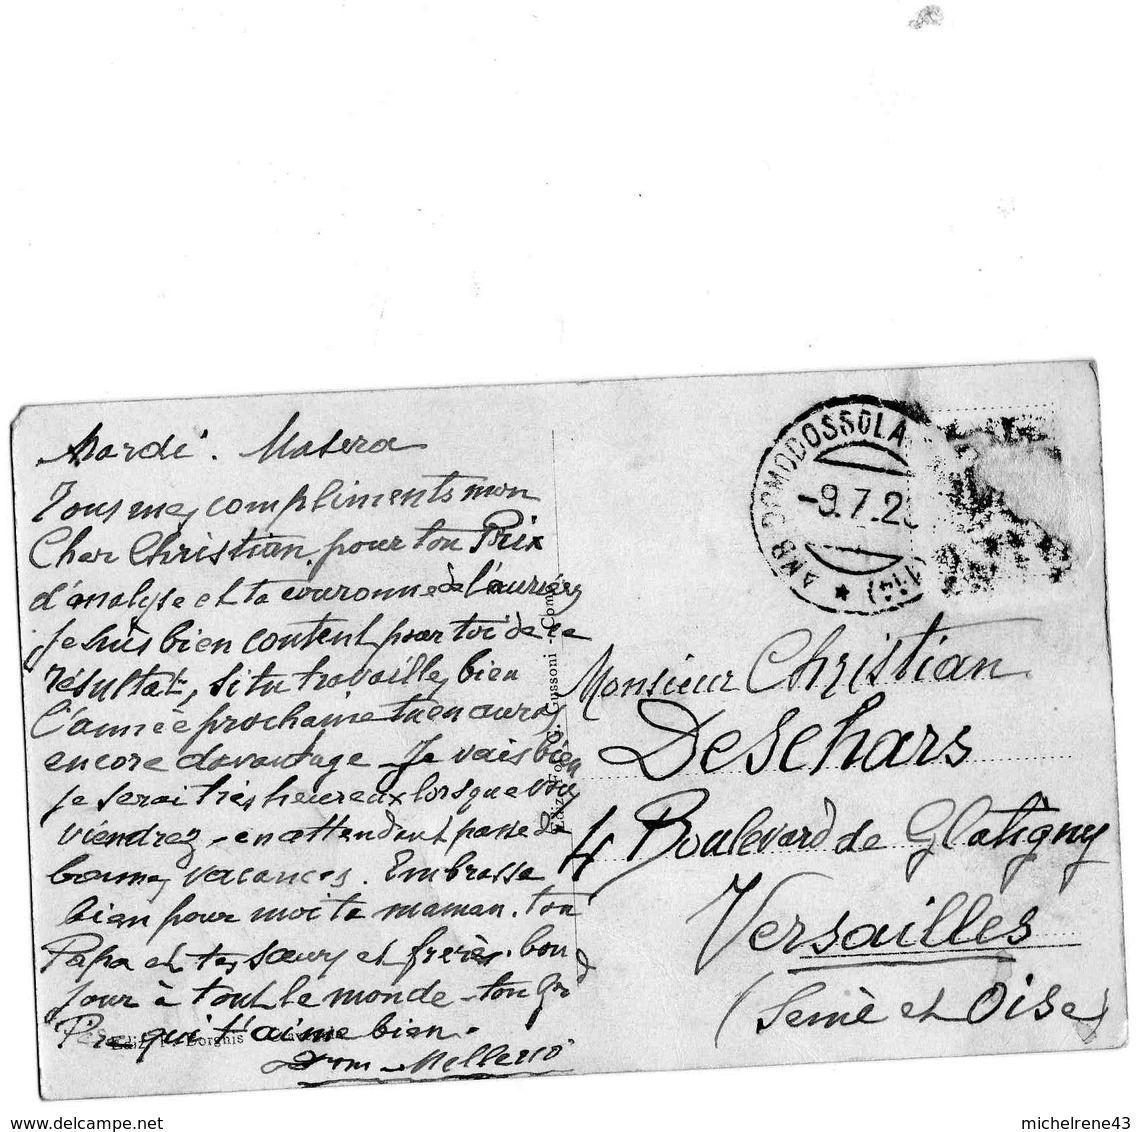 Mardi. Masera
Tous mes compliments mon
Cher Christian, pour ton Prix
d'analyse et ta couronne de lauriers
Je suis bien content pour toi de ce
résultat, si tu travailles bien
l'année prochaine tu en auras
encore davantage - Je vais bien
je serai très heureux lorsque vous
viendrez - en attendant passe de
bonnes vacances. Embrasse
bien pour moi ta maman. ton
Papa et tes sœurs et frères. bon
jour à tout le monde - ton Grd
Père qui t'aime bien.
Mellerio
Ediz. Borgnis
Ediz. Fot. G. Gussoni - Como
AMB. DOMODOSSOLA
-9.7.2
Monsieur Christian
Deschars
4 Boulevard de Glatigny
Versailles
(Seine et Oise)
delcampe.net
michelrene43